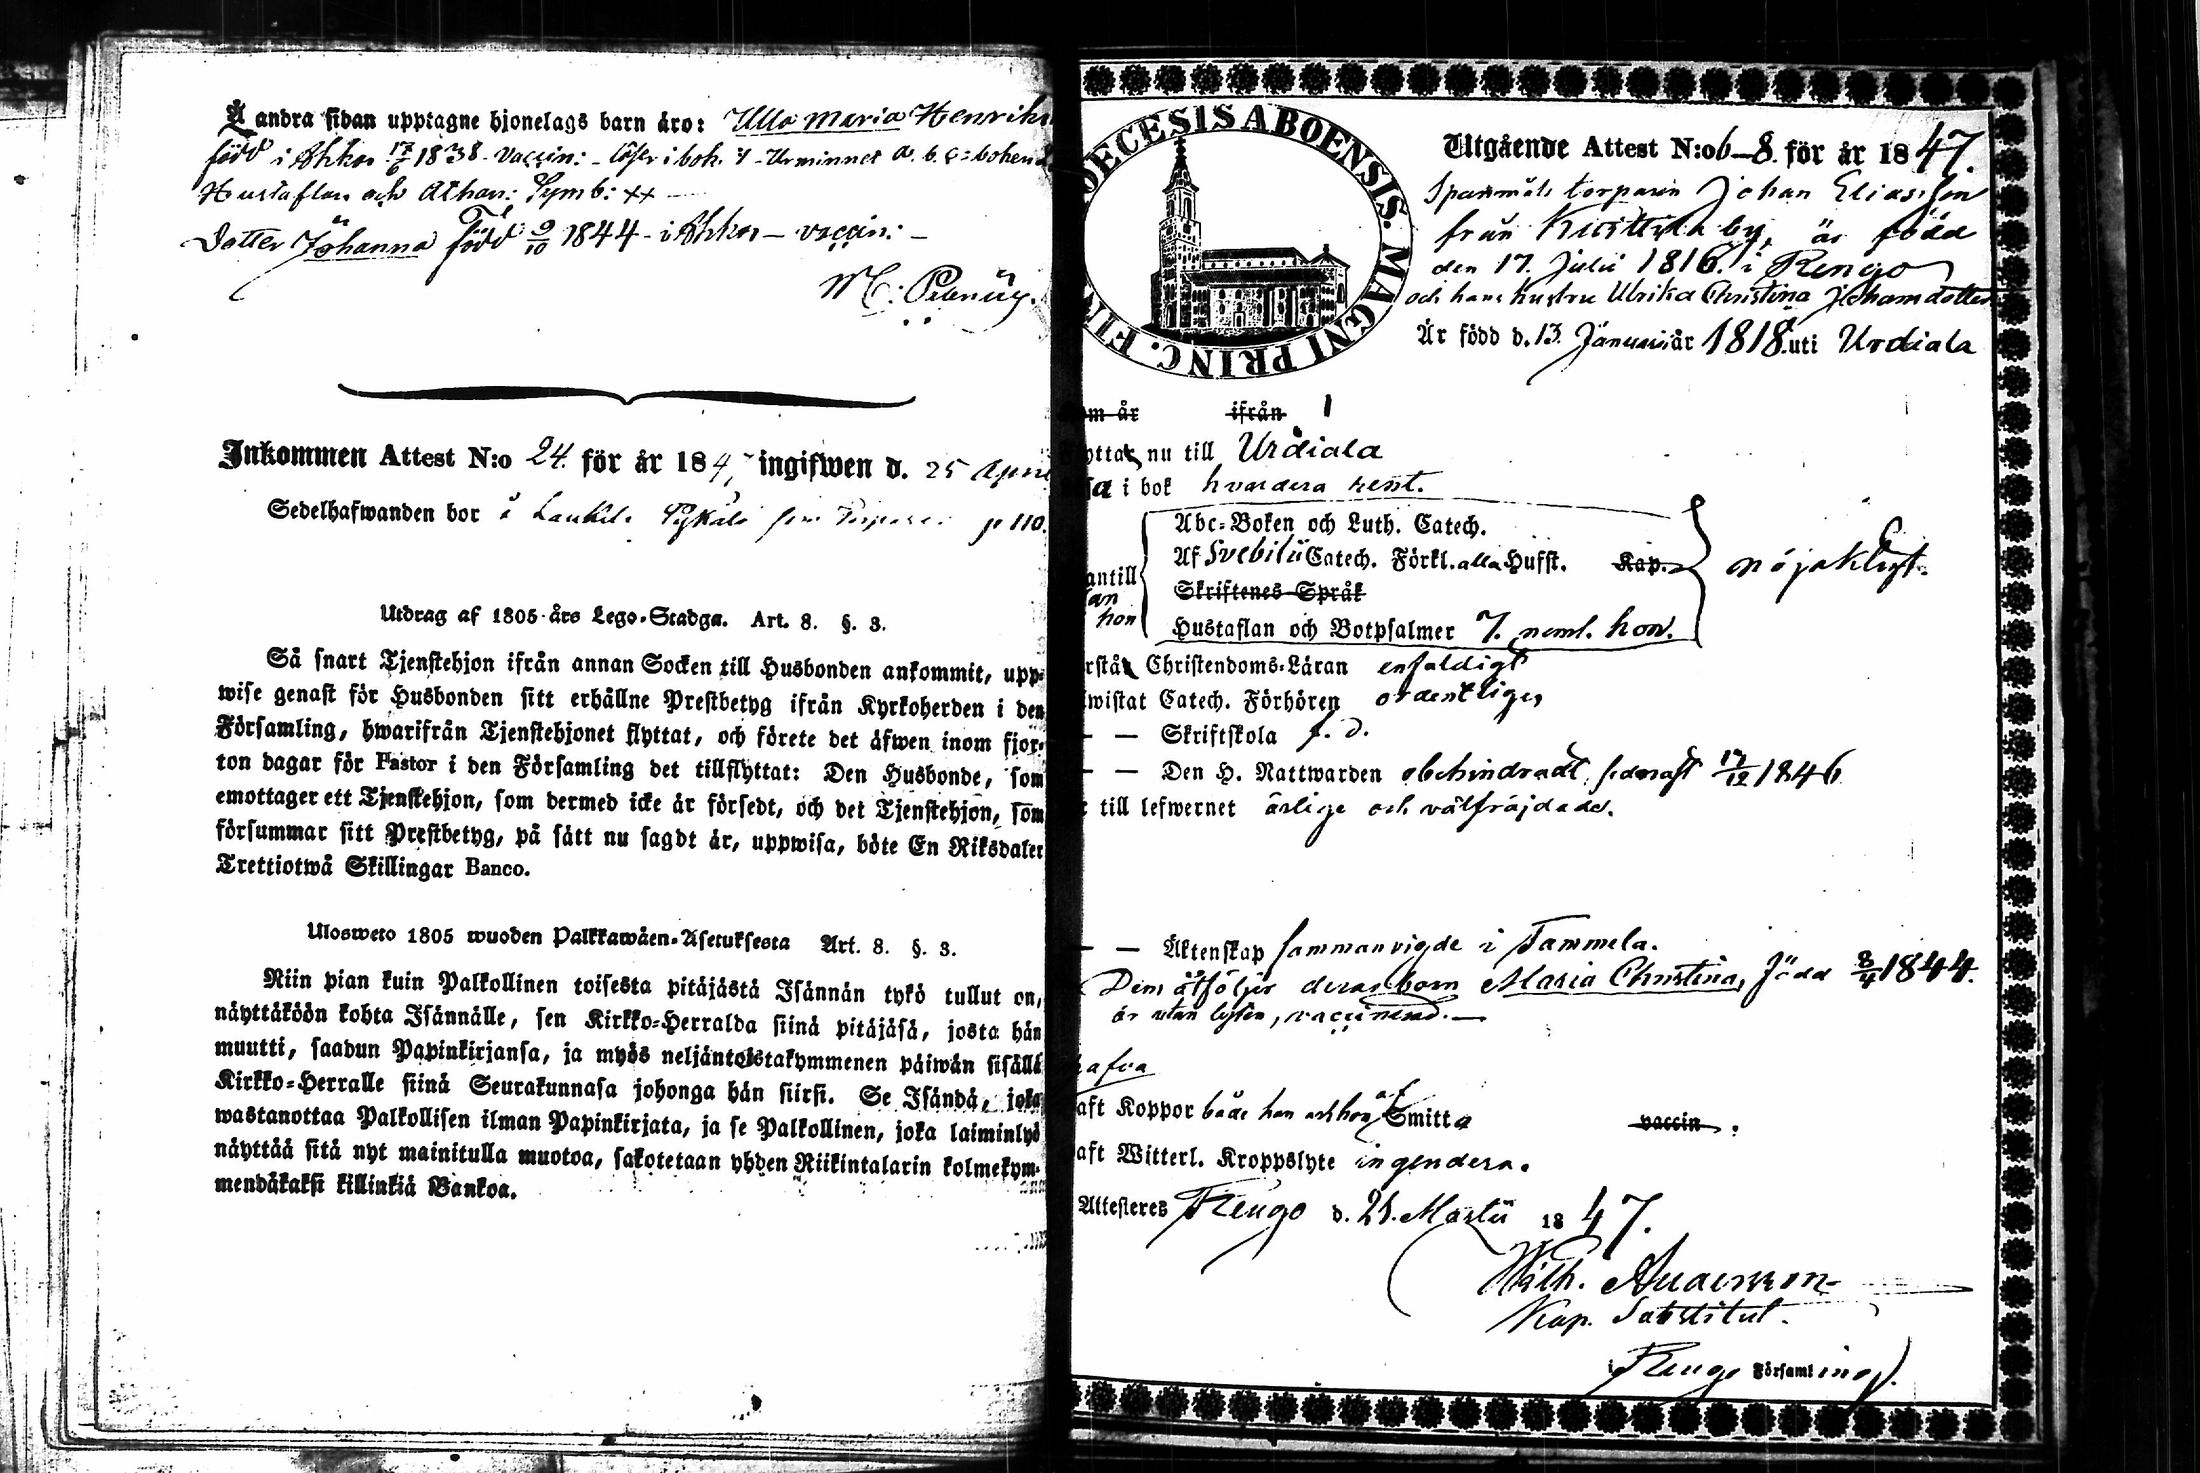 Å andra sidan upptagne hjonelags barn äro: Ulla Maria Henriks
född i Akkas 17/6 1838 - vaccin: - läser i bok. - Urminnet a. b. c = boken
Hustaflan och Athan: Symb: ++ -
Dotter Johanna född 9/10 1844 - i Akkas - vaccin: -
Inkommen Attest N:o 24. för år 184 ingifwen d. 25 April
Sedelhafwanden bor å p 110.
Utdrag af 1805 års Lego-Stadga. Art. 8. §. 3.
Så snart Tjenstehjon ifrån annan Socken till Husbonden ankommit, upp-
wise genast för Husbonden sitt erhållne Prestbetyg ifrån Kyrkoherden i den
Församling, hwarifrån Tjenstehjonet flyttat, och förete det äfwen inom fjor-
ton dagar för Pastor i den Församling det tillflyttat: Den Husbonde, som
emottager ett Tjenstehjon, som dermed icke är försedt, och det Tjenstehjon, som
försummar sitt Prestbetyg, på sätt nu sagdt är, uppwisa, böte En Riksdaler
Trettiotwå Skillingar Banco.
Ulosweto 1805 wuoden Palkkawäen-Asetuksesta Art. 8. §. 3.
Niin pian kuin Palkollinen toisesta pitäjästä Isännän tykö tullut on,
näyttäköön kohta Isännälle, sen Kirkko-Herralda siinä pitäjäsä, josta hän
muutti, saadun Papinkirjansa, ja myös neljäntoistakymmenen päiwän sisällä
Kirkko-Herralle siinä Seurakunnasa johonga hän siirsi. Se Isändä, joka
wastanottaa Palkollisen ilman Papinkirjata, ja se Palkollinen, joka laiminlyö
näyttää sitä nyt mainitulla muotoa, sakotetaan yhden Riikintalarin kolmekym-
mendäkaksi killinkiä Bankoa.
OECESIS ABOENSIS. MAGNI PRINC. FI
Utgående Attest N:o 6-8. för år 1847.
Spanmåls torparen Johan Eliasson
från by, är född
den 17. Julii 1816. i Rengo
och hans hustru Ulrika Christina Johansdotter
Är född d. 13 Januarii år 1818. uti Urdiala
om år ifrån
yttat nu till Urdiala
sa i bok hvardera rent.
Abc-Boken och Luth. Catech.
Af Svebilii Catech. Förkl. alla Hufst. Kap.
antill Skriftenes Språk nöjaktigt.
hon Hustaflan och Botpsalmer 7. neml. hon.
rstå Christendoms-Läran enfaldigt
wistat Catech. Förhören ordentligen
— — Skriftskola f. d.
— — Den H. Nattwarden obehindradt, sednast 17/12 1846
till lefwernet ärlige och välfräjdade.
— — Äktenskap sammanvigde i Tammela.
Dem åtföljer deras barn Maria Christina, född 8/4 1844.
är utan lyten, vaccinerad. —
hafva
aft Koppor både han och hon af Smitta vaccin.
aft Witterl. Kroppslyte ingendera.
Attesteres Rengo d. 21. Martii 1847.
Wilh. Andersson
Kap. Substitut.
i Rengo Församling.